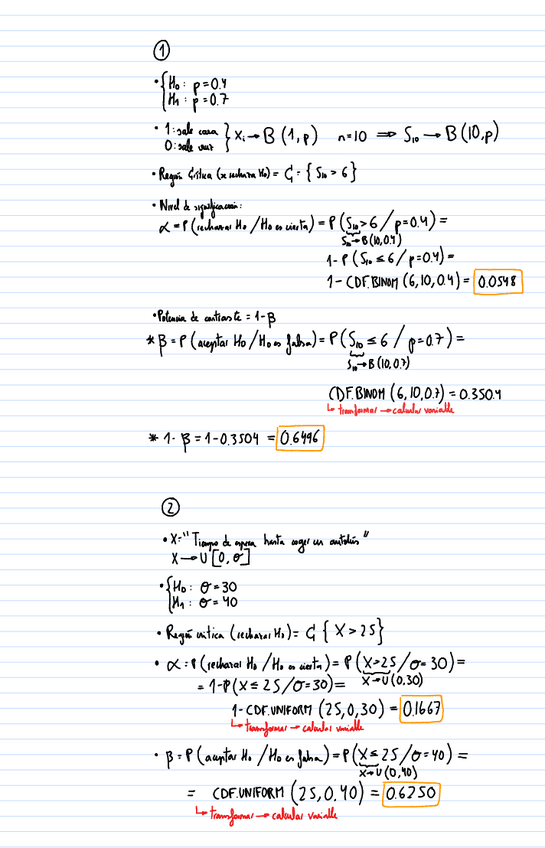 1
• { H₀: p=0.4
H₁: p=0.7
• 1: sale cara
0: sale cruz } Xi → B(1,p) n=10 ⇒ S₁₀ → B(10,p)
• Región Crítica (se rechaza H₀) = C = { S₁₀ > 6 }
• Nivel de significación:
α = P(rechazar H₀ / H₀ es cierta) = P(S₁₀ > 6 / p=0.4) =
S₁₀ → B(10,0.4)
1 - P(S₁₀ ≤ 6 / p=0.4) =
1 - CDF.BINOM (6,10,0.4) = 0.0548
• Potencia de contraste = 1-β
* β = P(aceptar H₀ / H₀ es falsa) = P(S₁₀ ≤ 6 / p=0.7) =
S₁₀ → B(10,0.7)
CDF.BINOM (6,10,0.7) = 0.3504
↳ transformar → calcular variable
* 1-β = 1-0.3504 = 0.6496
2
• X = "Tiempo de espera hasta coger un autobús"
X → U[0,θ]
• { H₀: θ=30
H₁: θ=40
• Región crítica (rechazar H₀) = C { X > 25 }
• α = P(rechazar H₀ / H₀ es cierta) = P(X > 25 / θ=30) =
X → U(0,30)
= 1-P(X ≤ 25 / θ=30) =
1-CDF.UNIFORM (25,0,30) = 0.1667
↳ transformar → calcular variable
• β = P(aceptar H₀ / H₀ es falsa) = P(X ≤ 25 / θ=40) =
X → U(0,40)
= CDF.UNIFORM (25,0.40) = 0.6250
↳ transformar → calcular variable